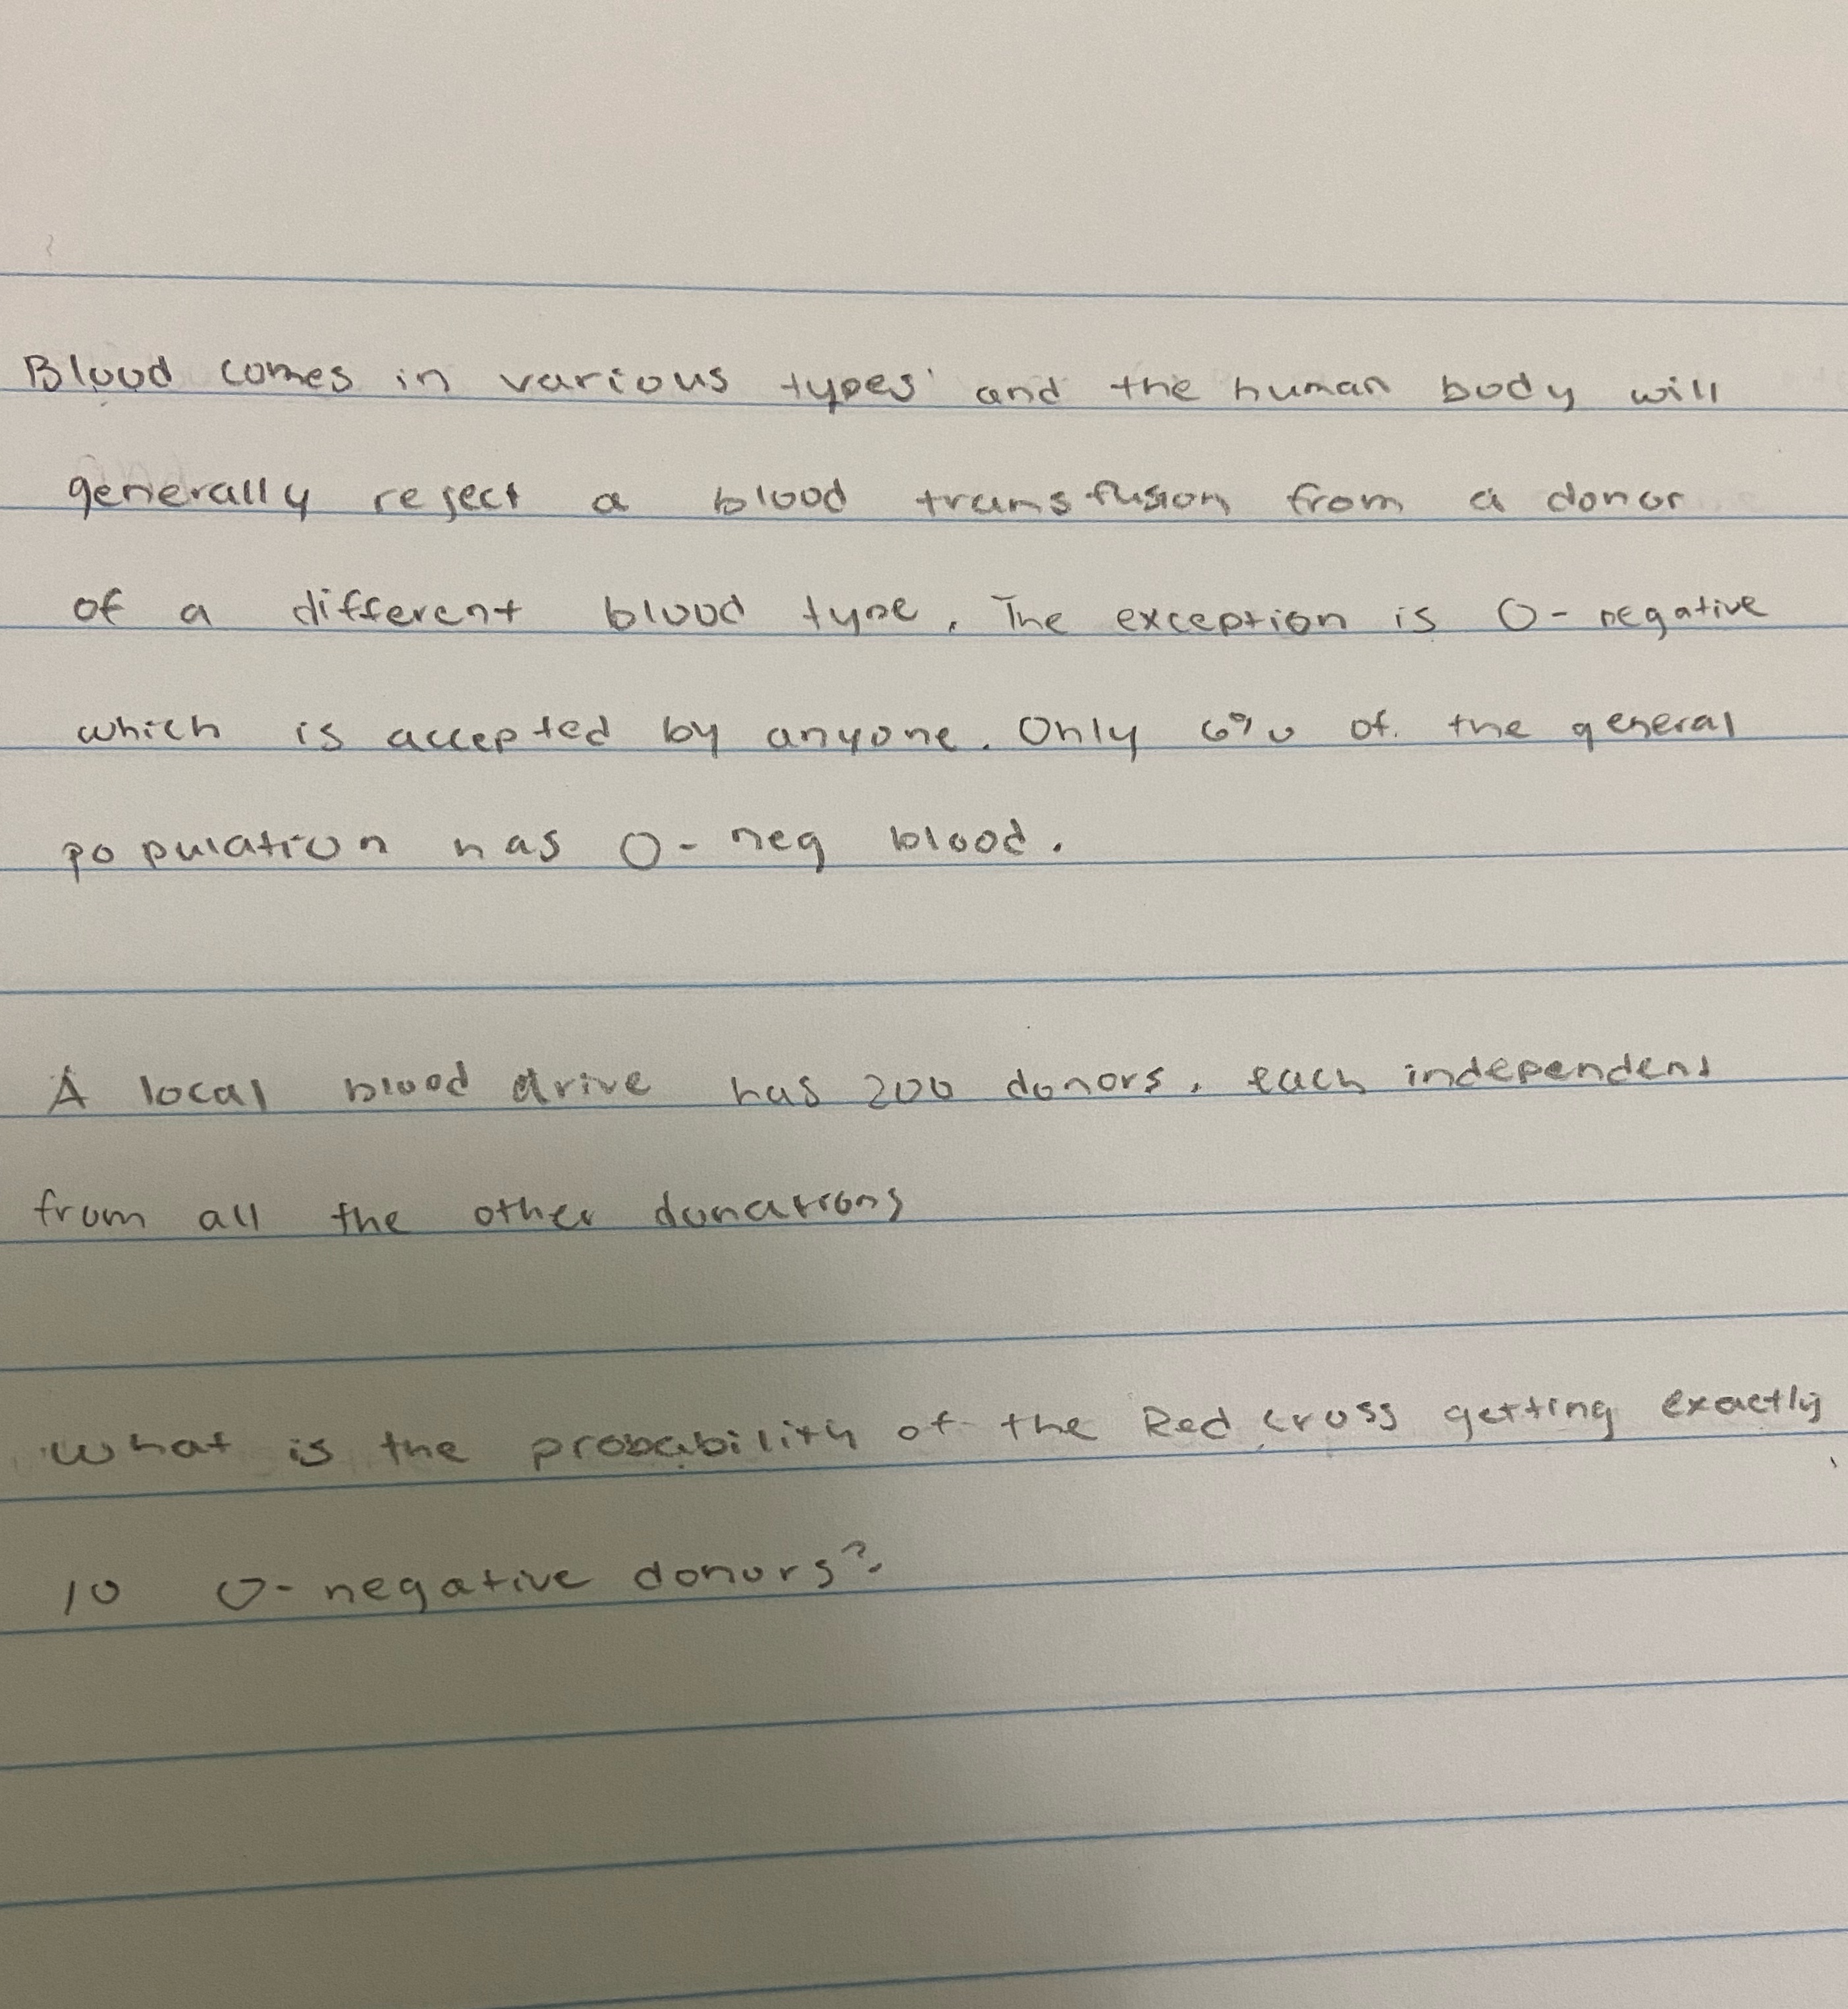 Blood comes in various types and the human body will
generally reject a blood transfusion from a donor
of a different blood type. The exception is O-negative
which is accepted by anyone. Only 6% of the general
population has O-neg blood.
A local blood drive has 200 donors, each independent
from all the other donations
What is the probability of the Red cross getting exactly
10 O-negative donors?